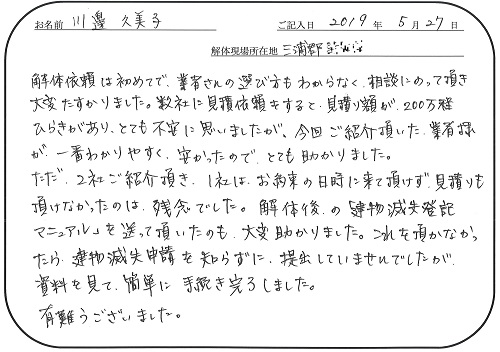 お名前 川邊 久美子 ご記入日 2019 年 5 月 27 日
解体現場所在地 三浦郡
解体依頼は初めてで、業者さんの選び方もわからなく、相談にのって頂き
大変たすかりました。数社に見積依頼をすると、見積り額が、200万程
ひらきがあり、とても不安に思いましたが、今回ご紹介頂いた、業者様
が、一番わかりやすく、安かったので、とても助かりました。
ただ、2社ご紹介頂き、1社は、お約束の日時に来て頂けず、見積りも
頂けなかったのは、残念でした。解体後の「建物滅失登記
マニュアル」を送って頂いたのも、大変助かりました。これを頂かなかっ
たら、建物滅失申請を知らずに、提出していませんでしたが、
資料を見て、簡単に手続き完了しました。
有難うございました。